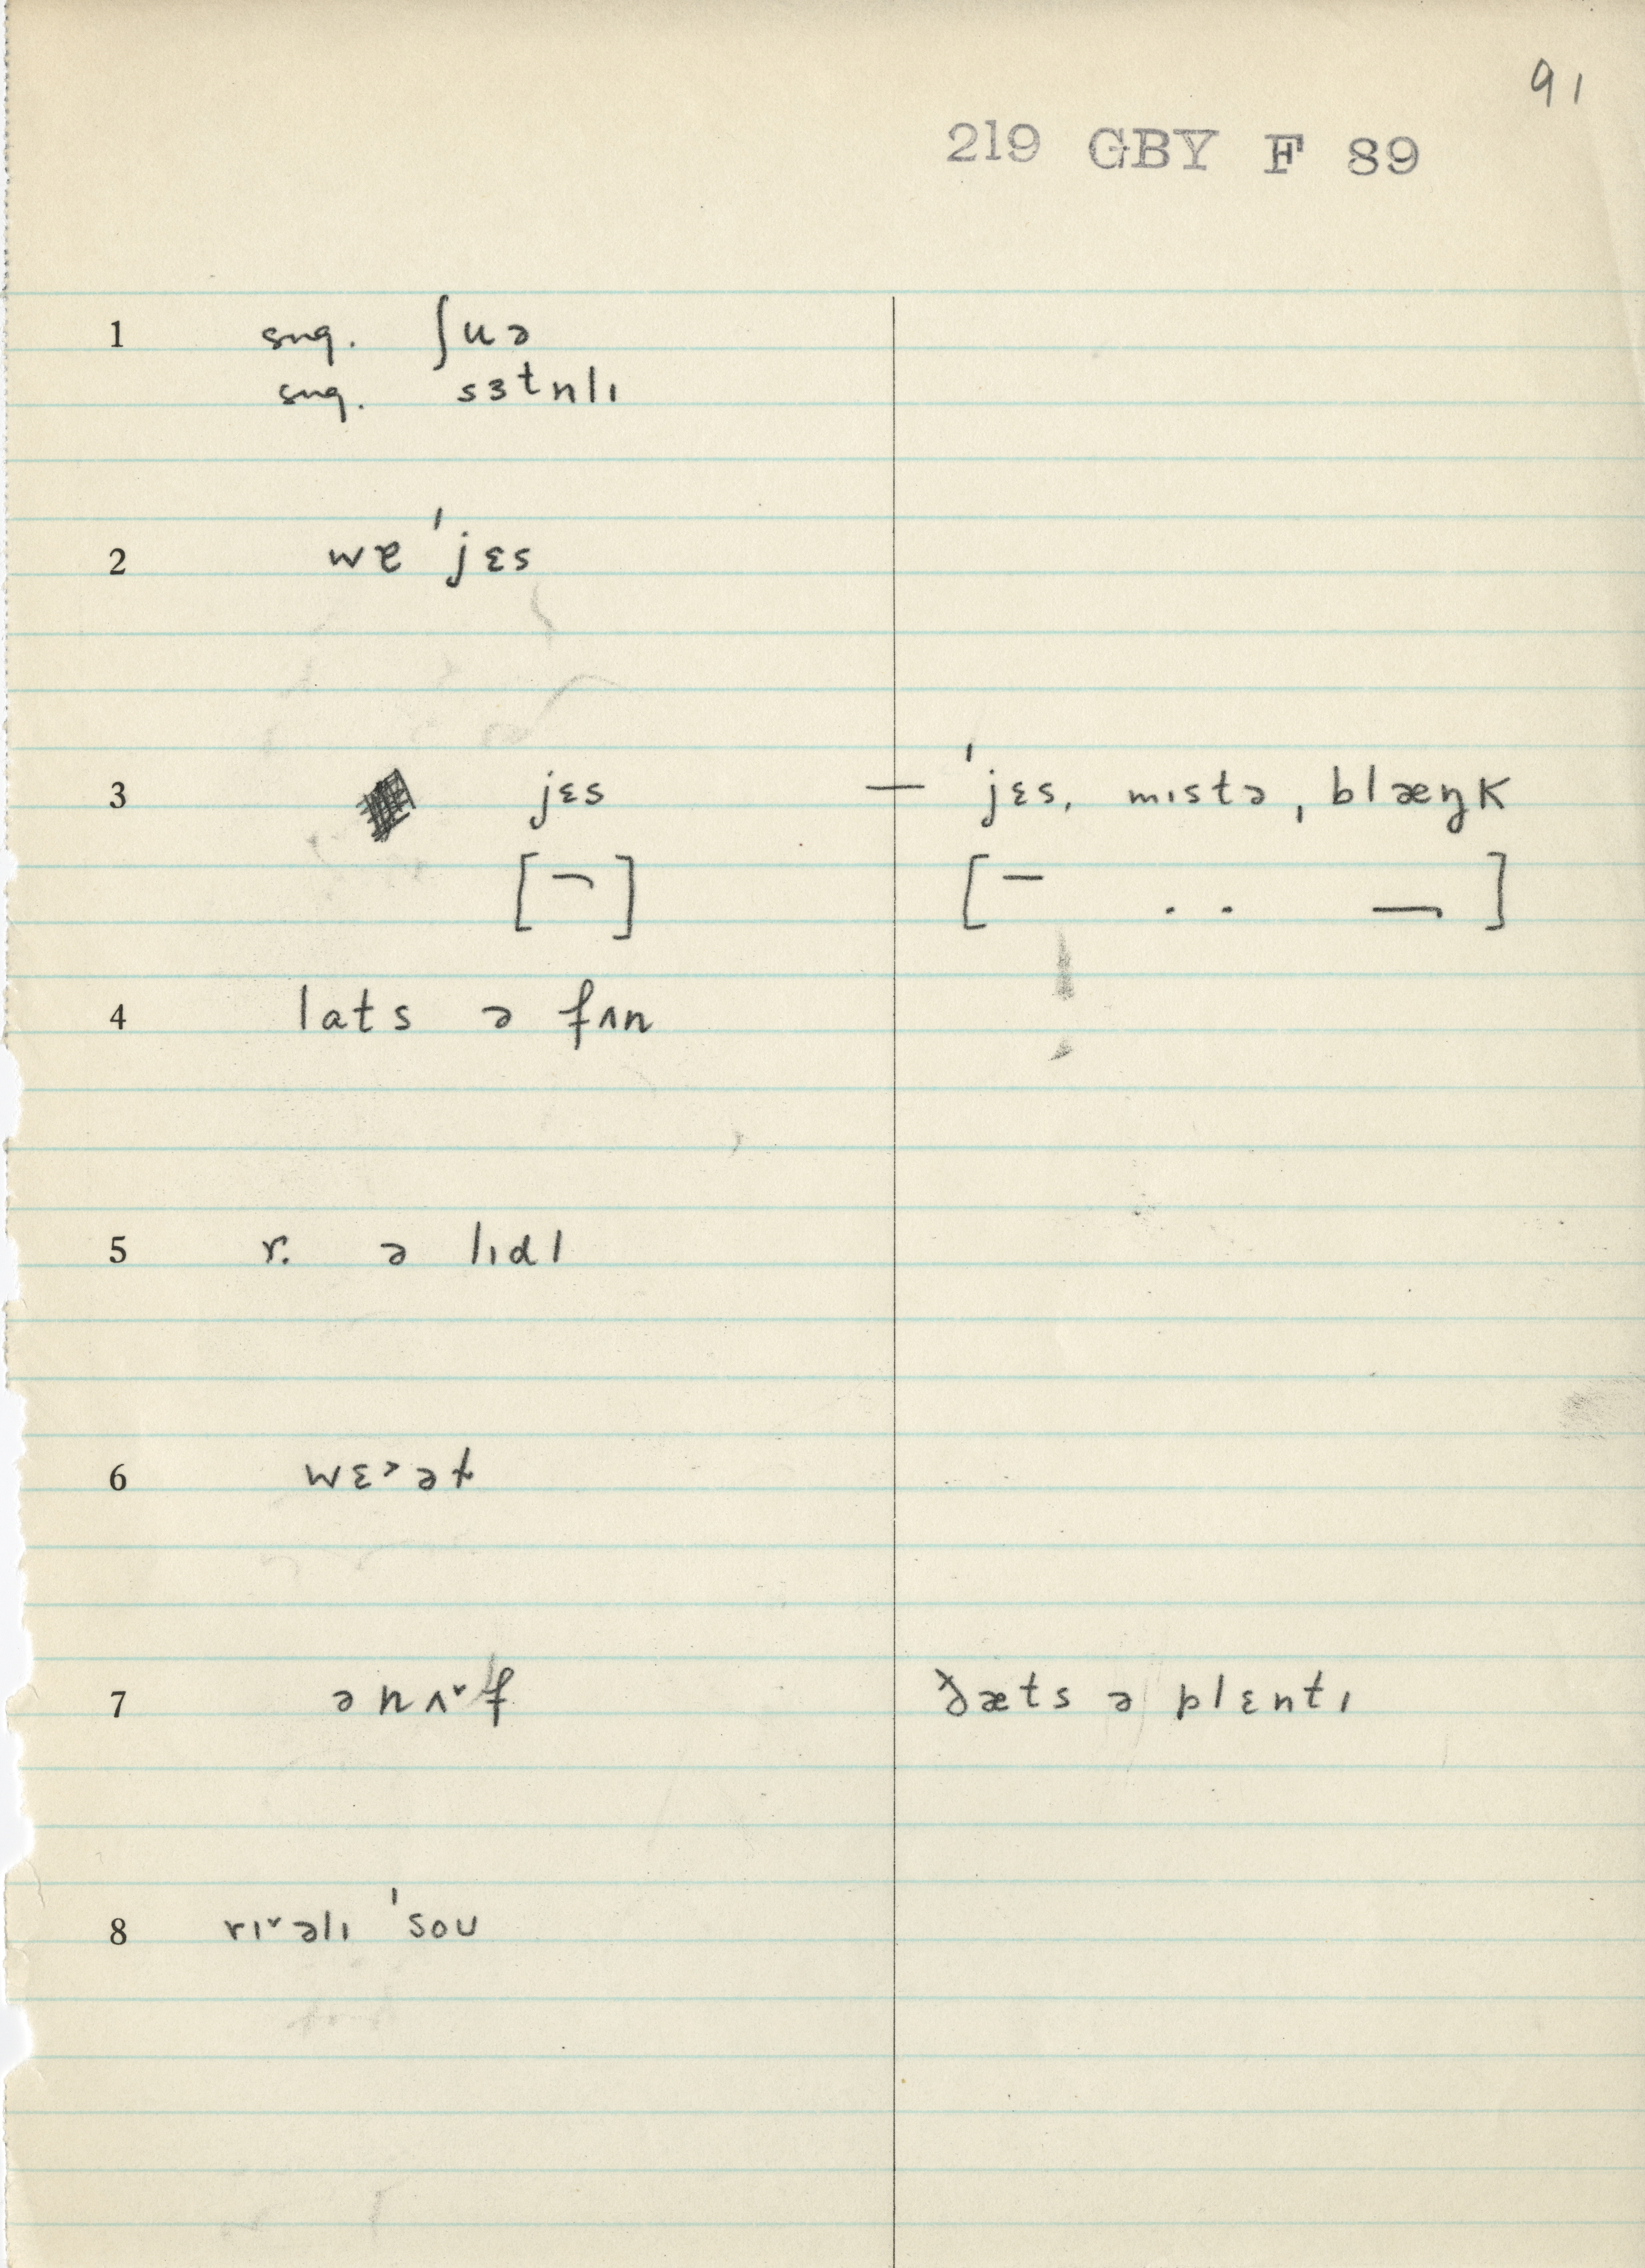 91
219 GBY F 89
1 sug. ʃuə
sug. sɜtnlɪ
2 wɐ 'jɛs
3 jɛs — 'jɛs, mɪstə ˌblæŋk
[¬] [– . . ¬]
4 lats ə fʌn
5 r. ə lɪdl
6 wɛ˃ət
7 ənʌ˅f ðæts ə plɛntɪ
8 rɪ˅əlɪ 'soʊ